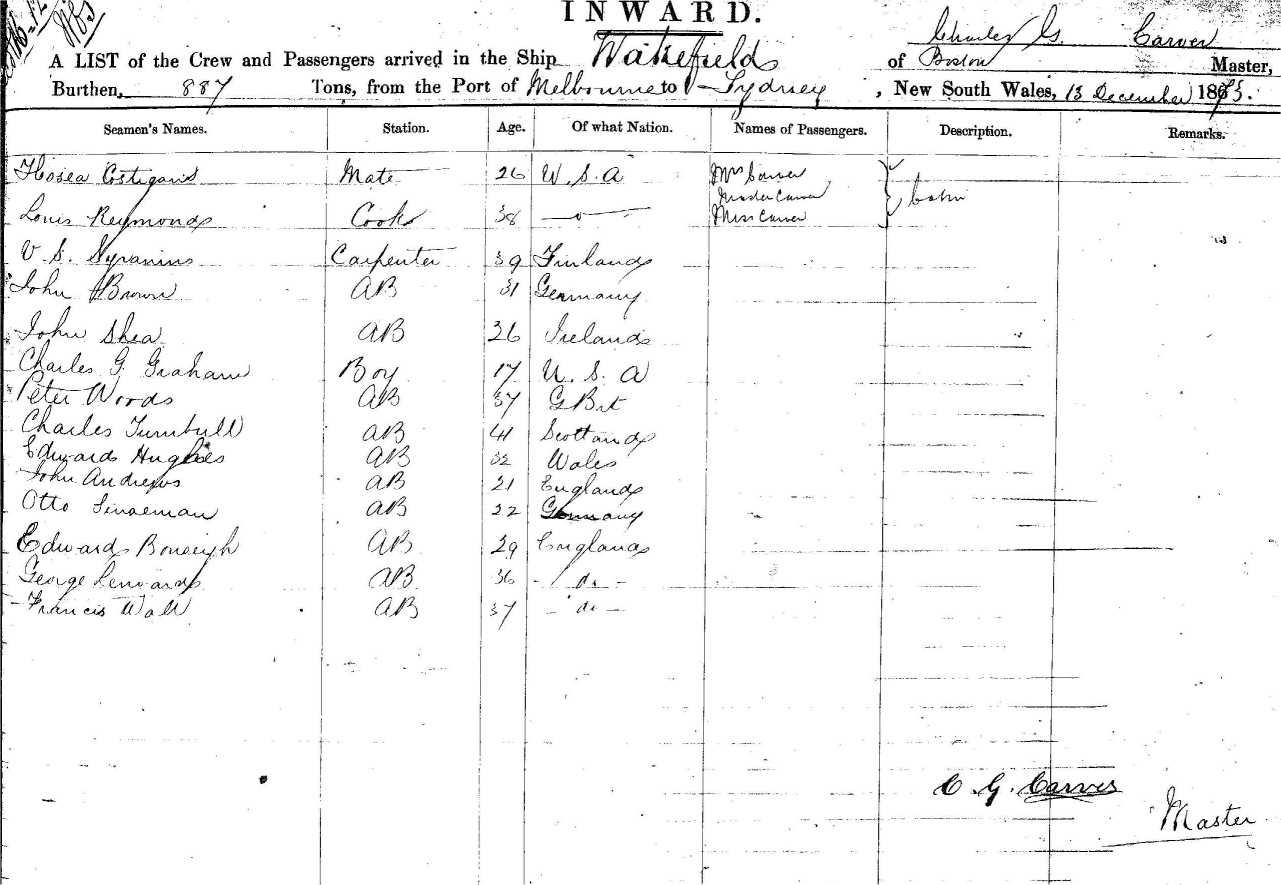 INWARD.
Charles G. Carver
A LIST of the Crew and Passengers arrived in the Ship Wakefield of Boston Master,
Burthen, 887 Tons, from the Port of Melbourne to Sydney, New South Wales, 13 December 1873.
Seamen's Names. Station. Age. Of what Nation. Names of Passengers. Description. Remarks.
Hosea Costigan Mate 26 U.S.A Mrs Carver
Master Carver Cabin
Louis Reymond Cook 38 -o- Miss Carver
V. S. Nyranins Carpenter 39 Finland
John Brown AB 31 Germany
John Shea AB 26 Ireland
Charles G. Graham Boy 17 U.S.A
Peter Woods AB 37 G Brt
Charles Turnbull AB 41 Scotland
Edward Hughes AB 32 Wales
John Andrews AB 21 England
Otto AB 22 Germany
Edward AB 29 England
George AB 36 - do -
Francis Wall AB 37 - do -
C. G. Carver
Master